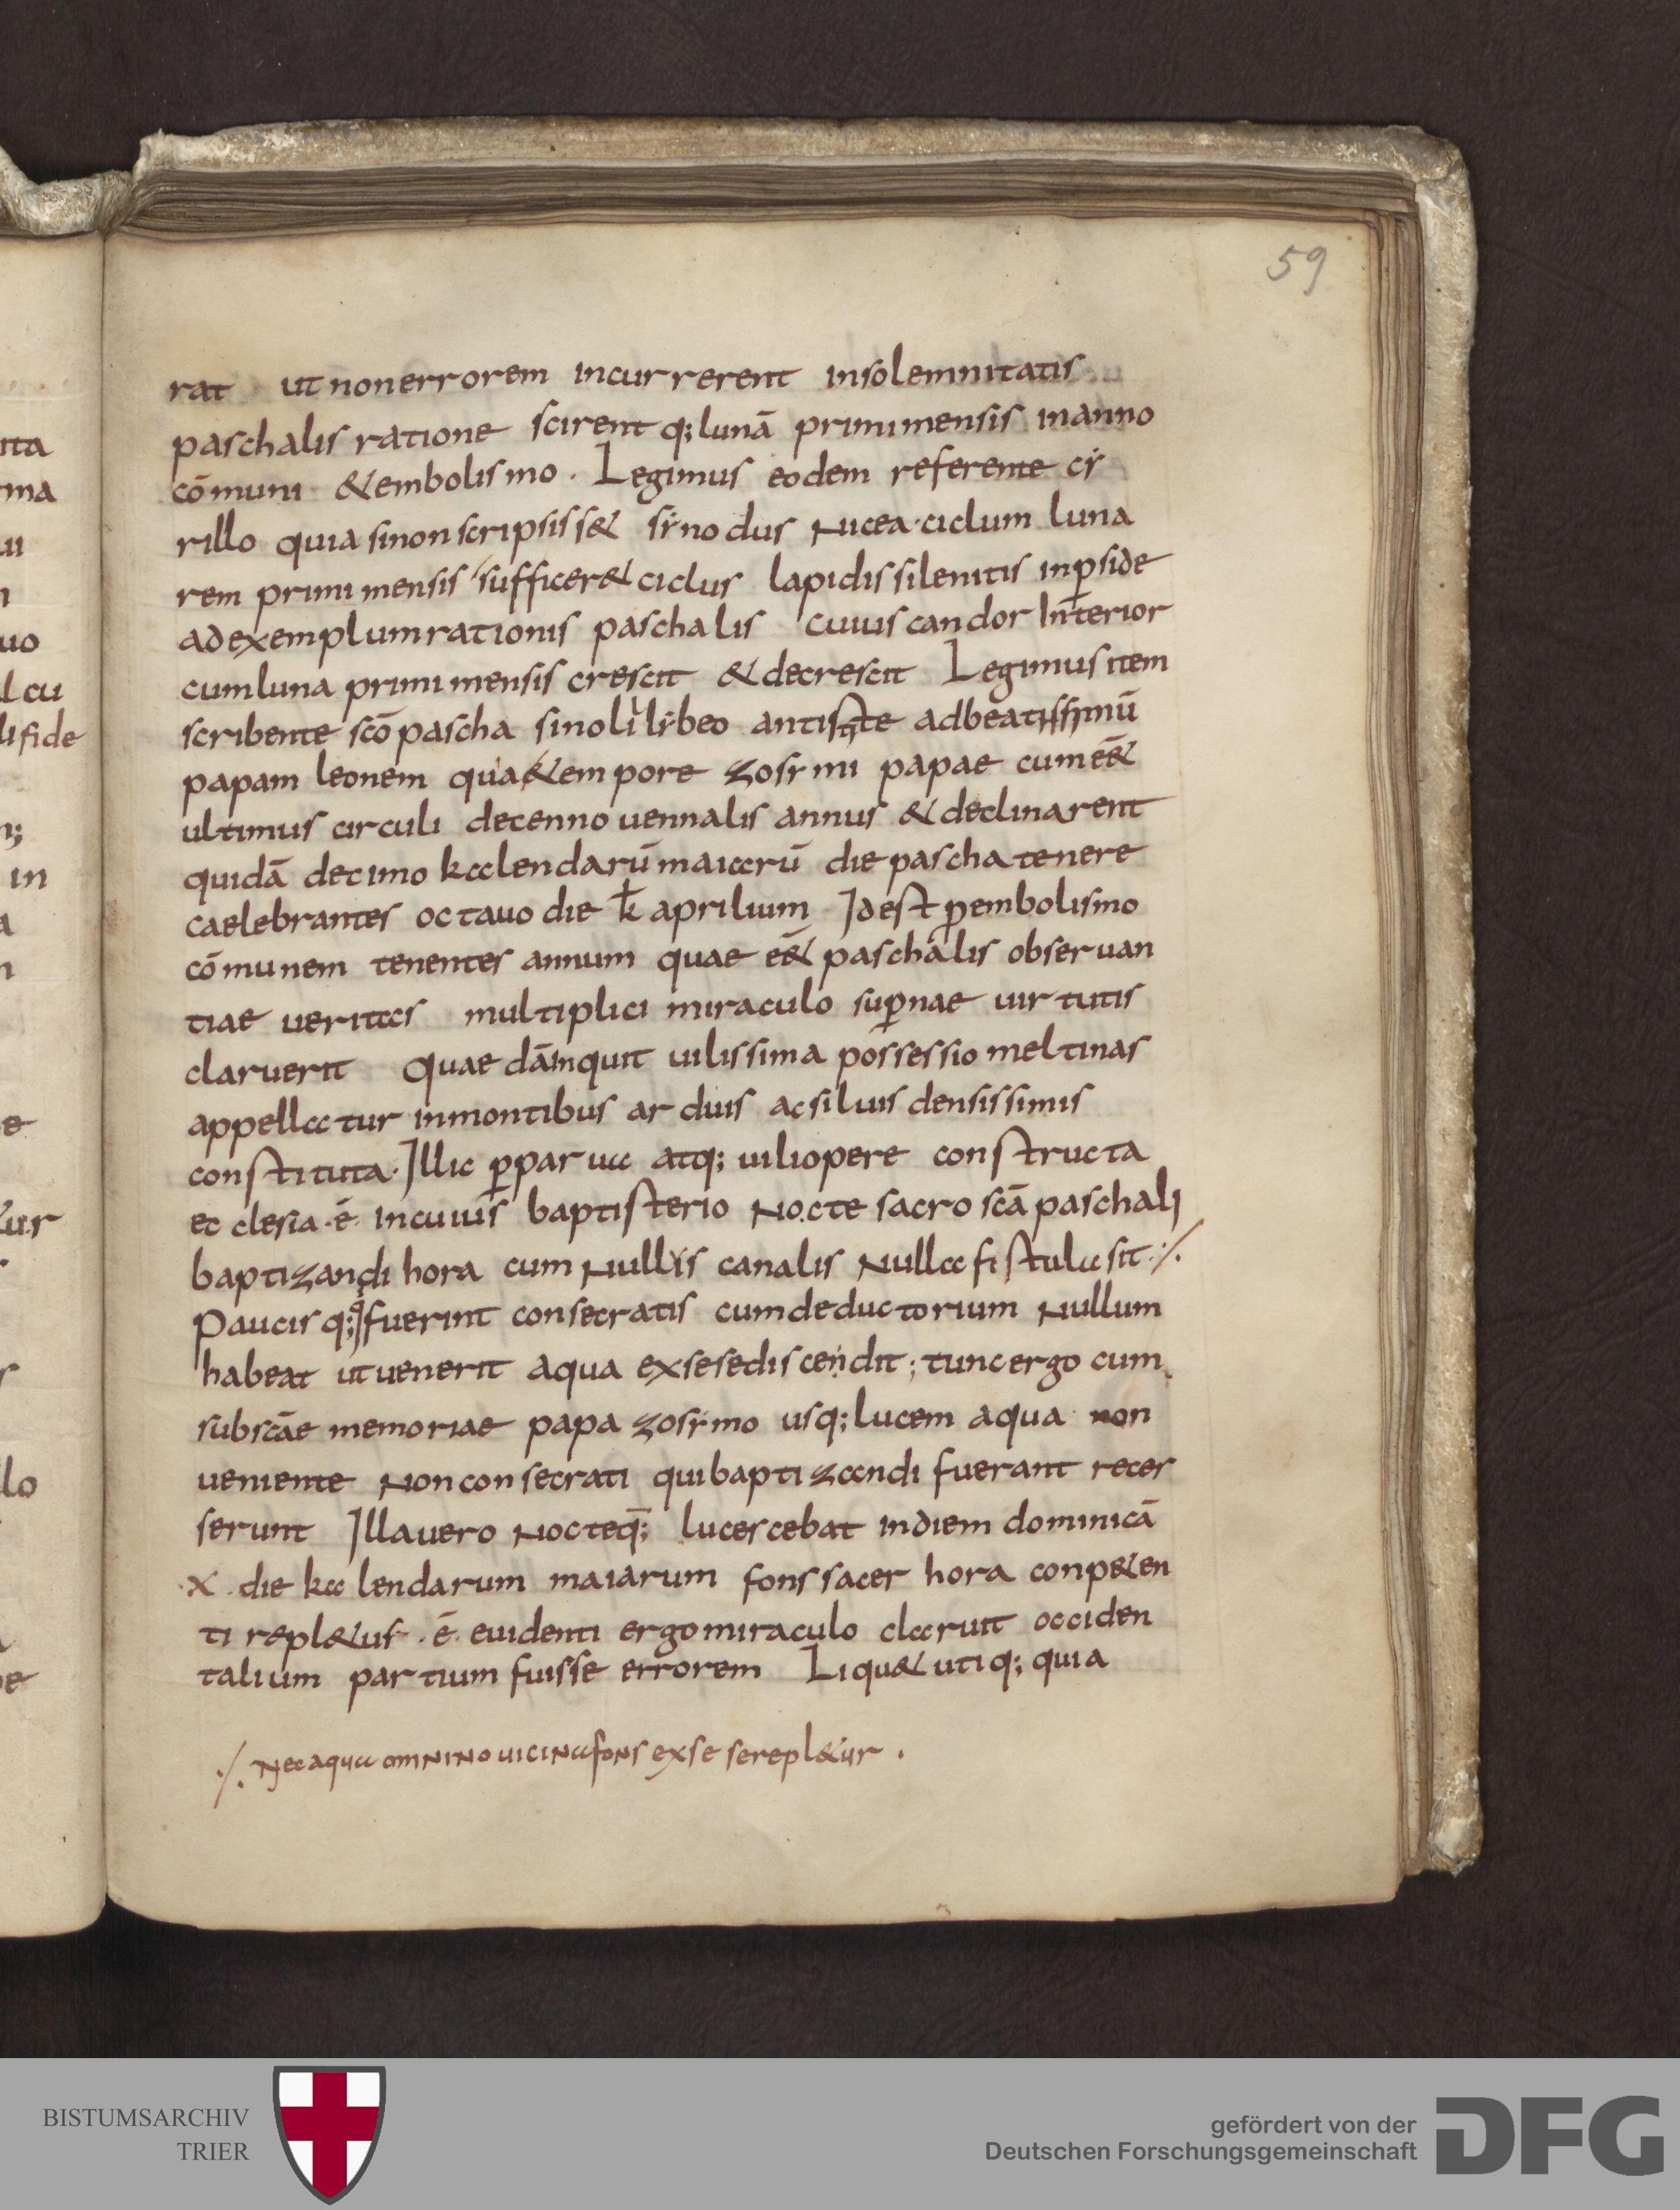 59
rat ut non errorem incurrerent insolemnitatis
paschalis ratione scirent q; lunā primi mensis in anno
cōmuni & embolismo. Legimus eodem referente cẏ
rillo quia sinon scripsiss& sẏnodus Nicea ciclum luna
rem primi mensis sufficer& ciclus lapidis silenitis inꝑside
ad exemplum rationis paschalis cuius candor Interior
cum luna primi mensis crescit & decrescit Legimus item
scribente scō pascha sino lili lẏbeo antistite ad beatissimū
papam leonem quia &empore zosẏmi papae cum eē&
ultimus circuli decennovennalis annus & declinarent
quidā decimo kalendarū maiarū die pascha tenere
caelebrantes octauo die k̄ aprilium Id est ꝑ embolismo
cōmunem tenentes annum quae eē& paschalis obseruan
tiae ueritas multiplici miraculo suꝑnae uirtutis
claruerit Quaedā inquit uilissima possessio meltinas
appellatur in montibus arduis ac siluis densissimis
constituta. Illic ꝑparua atq; uili opere constructa
ecclesia .ē. in cuius baptisterio Nocte sacroscā paschali
baptizandi hora cum Nullus canalis Nulla fistula sit ·/.
Paucis q; fuerint consecratis cum deductorium Nullum
habeat ut uenerit aqua ex sese discendit; tunc ergo cum
sub scāe memoriae papa zosẏmo usq; lucem aqua non
ueniente Non consecrati qui baptizandi fuerant reces
serunt Illa uero Nocte q̄; lucescebat in diem dominicā
.x. die kalendarum maiarum fons sacer hora conp&en
ti repl&us .ē. euidenti ergo miraculo claruit occiden
talium partium fuisse errorem Liqu& utiq; quia
·/. Nec aqua omNiNo uiciNa foNs ex se se repl&ur .
ita
ma
ui
uo
l cu
li fide
n;
in
a
e
&ur
lo
BISTUMSARCHIV
TRIER
gefördert von der
Deutschen Forschungsgemeinschaft
DFG